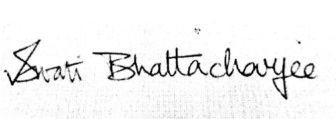 Swati Bhattacharjee